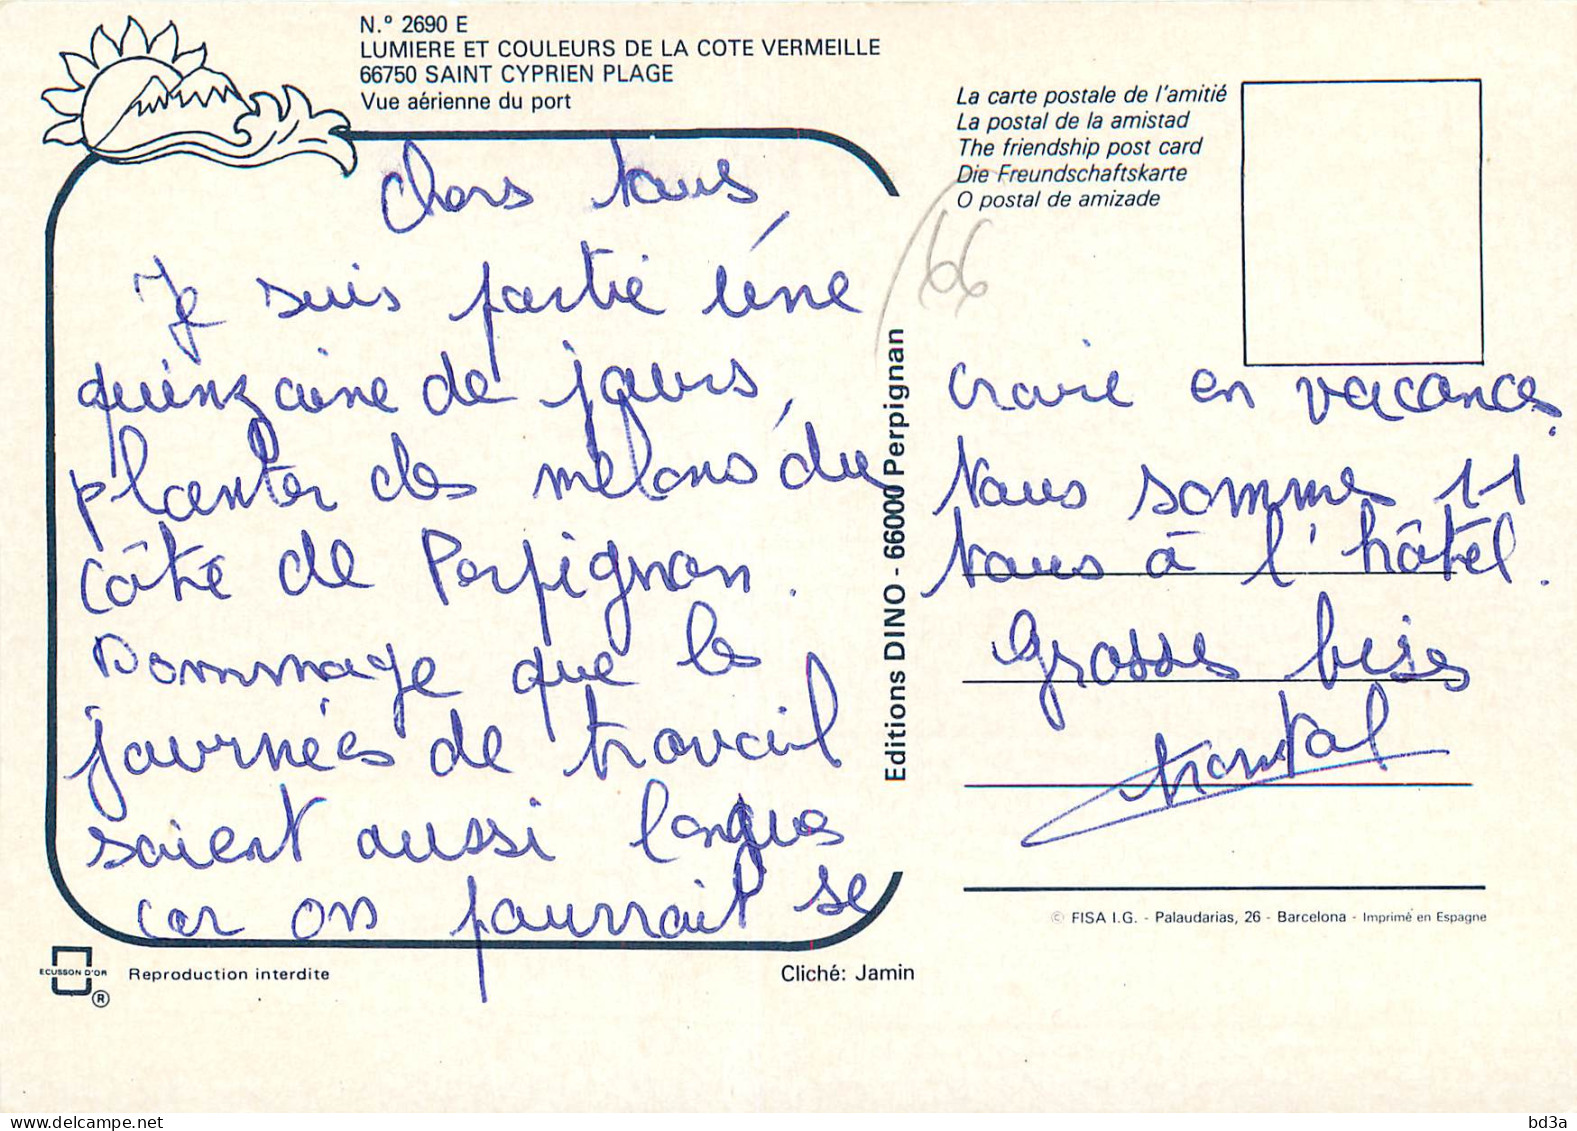 N.º 2690 E
LUMIERE ET COULEURS DE LA COTE VERMEILLE
66750 SAINT CYPRIEN PLAGE
Vue aérienne du port
La carte postale de l'amitié
La postal de la amistad
The friendship post card
Die Freundschaftskarte
O postal de amizade
66
Chers tous,
Je suis partie une
quinzaine de jours,
planter des melons du
côté de Perpignan.
Dommage que les
journées de travail
soient aussi longues
car on pourrait se
Editions DINO - 66000 Perpignan
croire en vacances.
Nous sommes 11
tous à l'hôtel.
Grosses bises
Chantal
© FISA I.G. - Palaudarias, 26 - Barcelona - Imprimé en Espagne
ECUSSON D'OR
®
Reproduction interdite
Cliché: Jamin
delcampe.net
bd3a